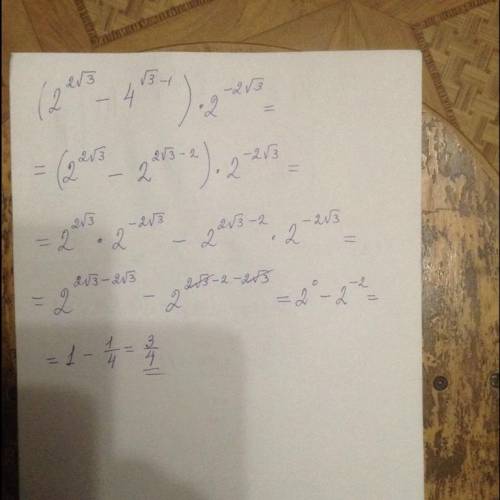 (2^{2√3} − 4^{√3−1}) · 2^{−2√3} =
= (2^{2√3} − 2^{2√3−2}) · 2^{−2√3} =
= 2^{2√3} · 2^{−2√3} − 2^{2√3−2} · 2^{−2√3} =
= 2^{2√3−2√3} − 2^{2√3−2−2√3} = 2^0 − 2^{−2} =
= 1 − 1/4 = 3/4